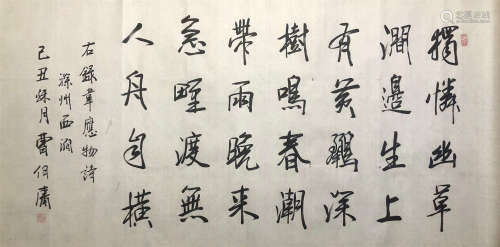 獨憐幽草
澗邊生上
有黃鸝深
樹鳴春潮
帶雨晚来
急野渡無
人舟自橫
右錄韋應物詩
滁州西澗
己丑秋月曹伯庸